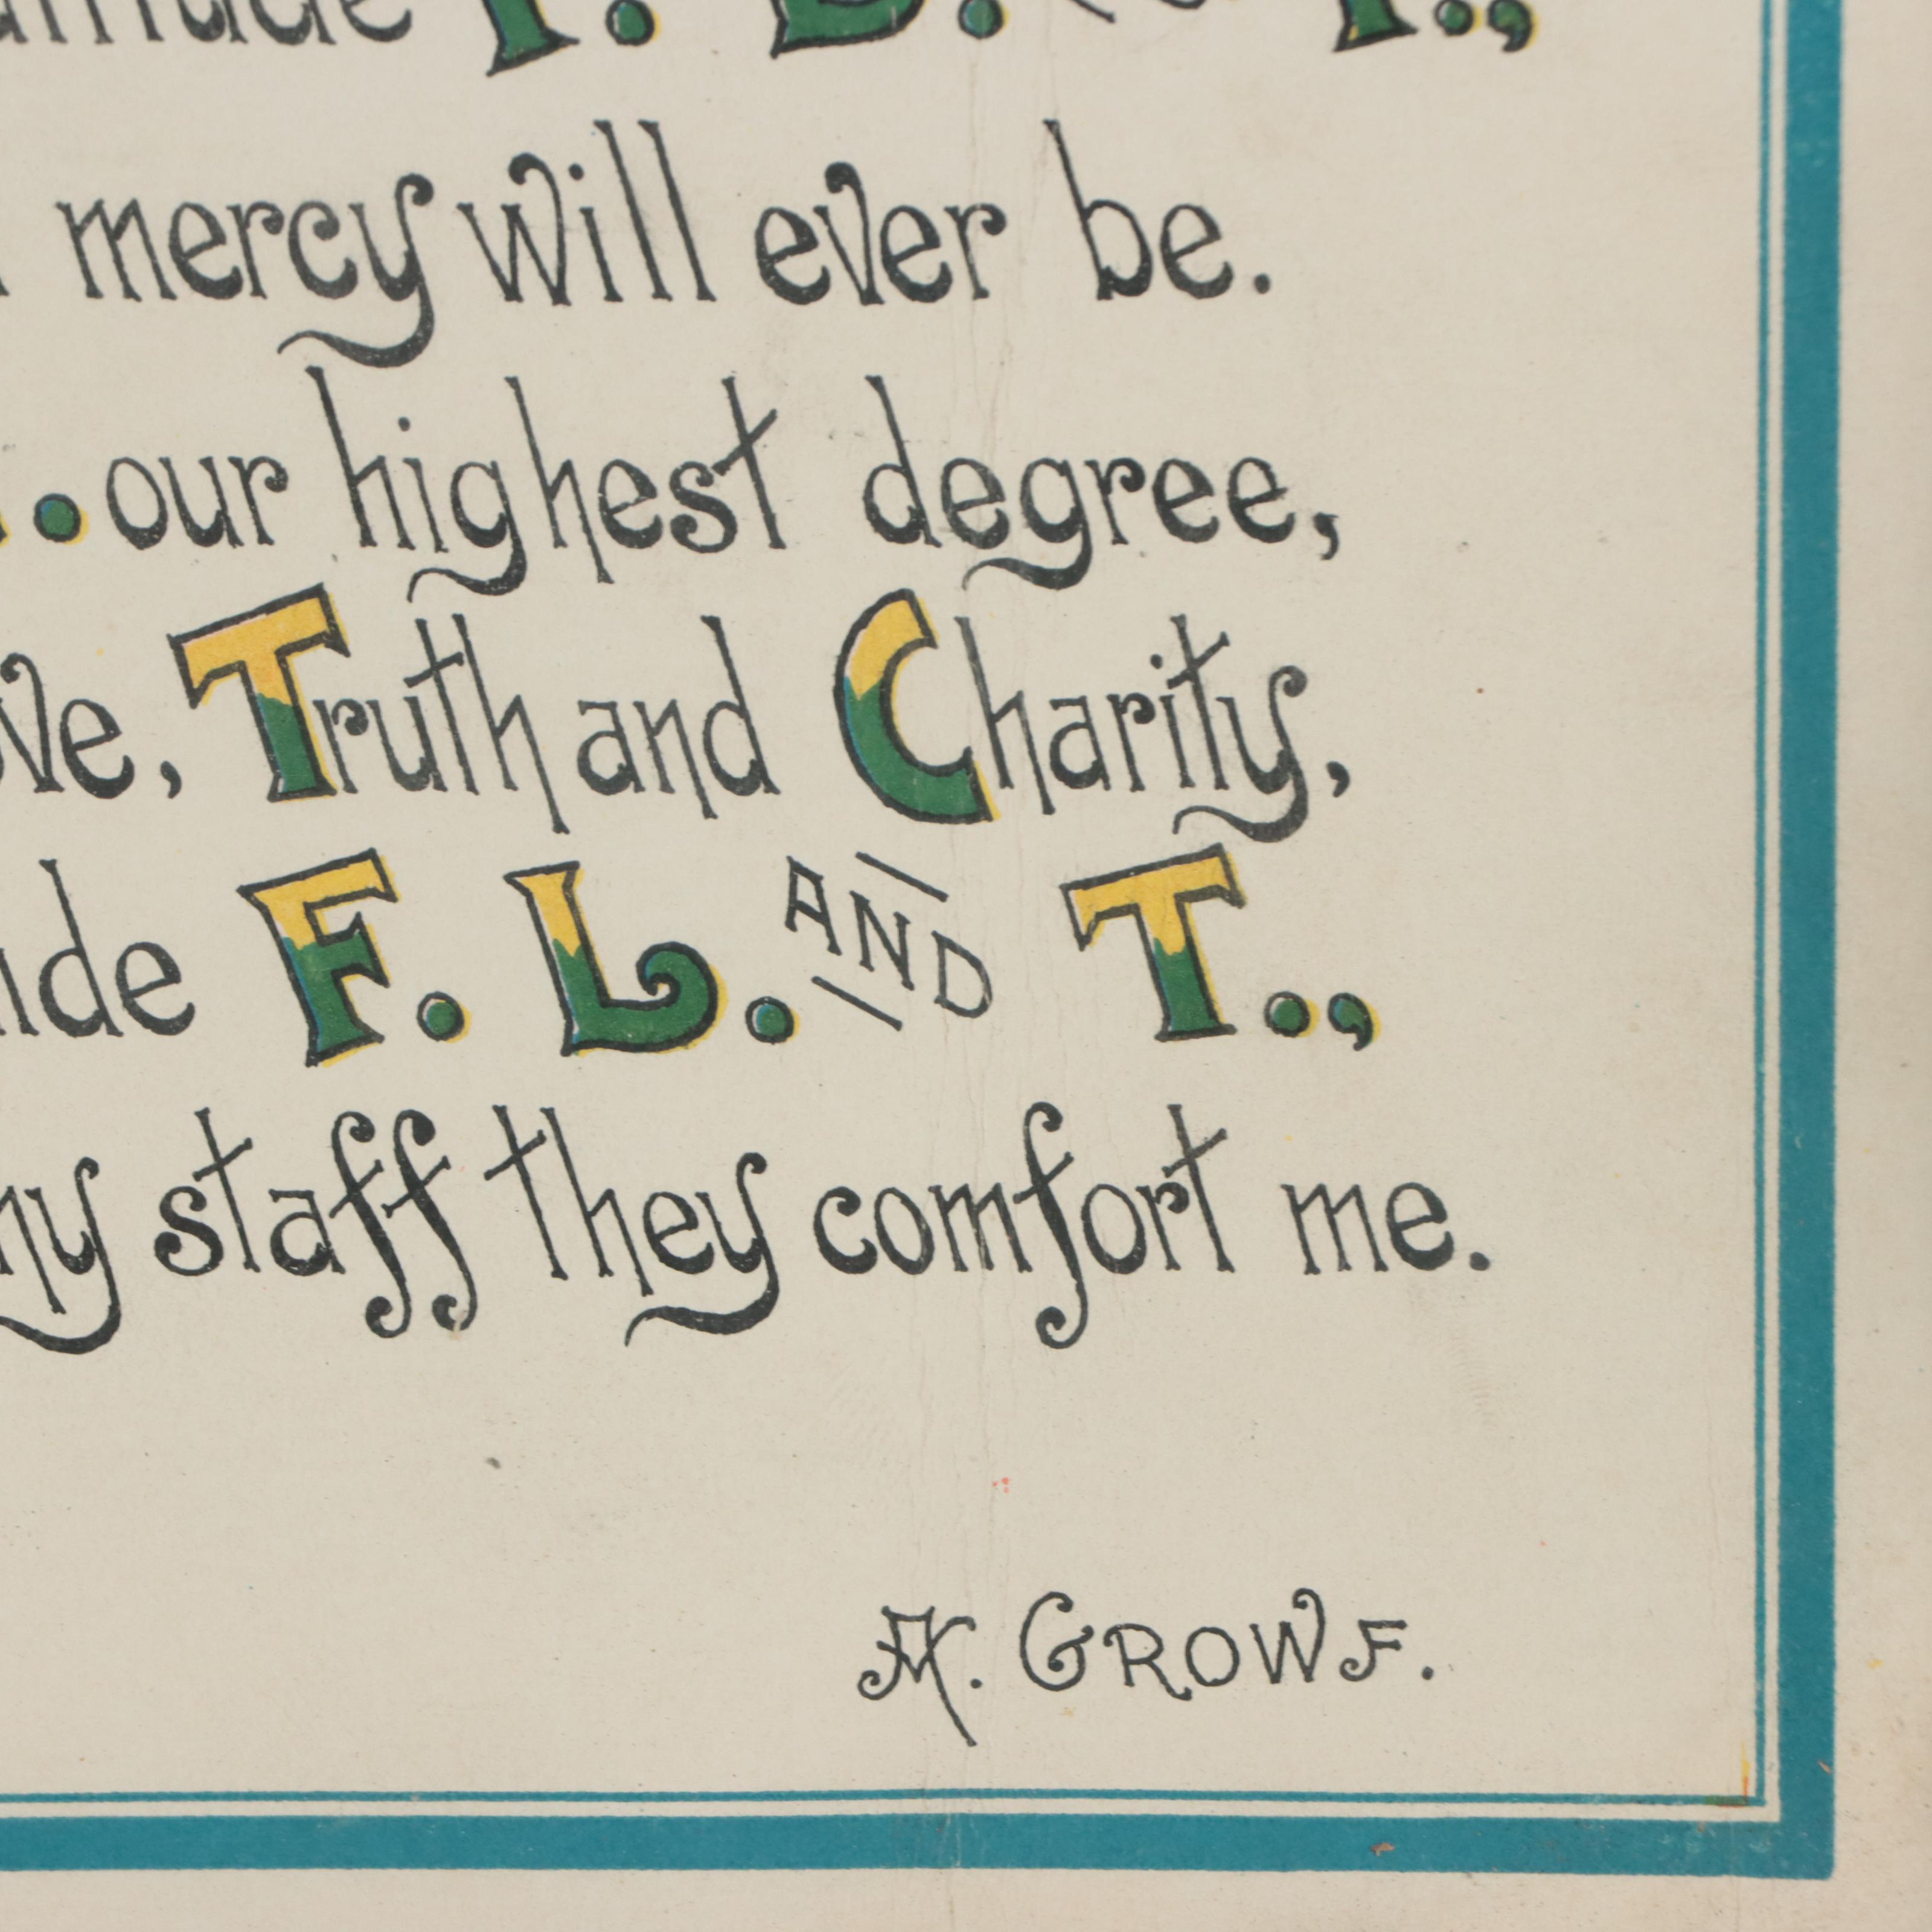 F. L. T.,
mercy will ever be.
. our highest degree,
Truth and Charity,
F. L. AND T.,
staff they comfort me.
A. GROWF.